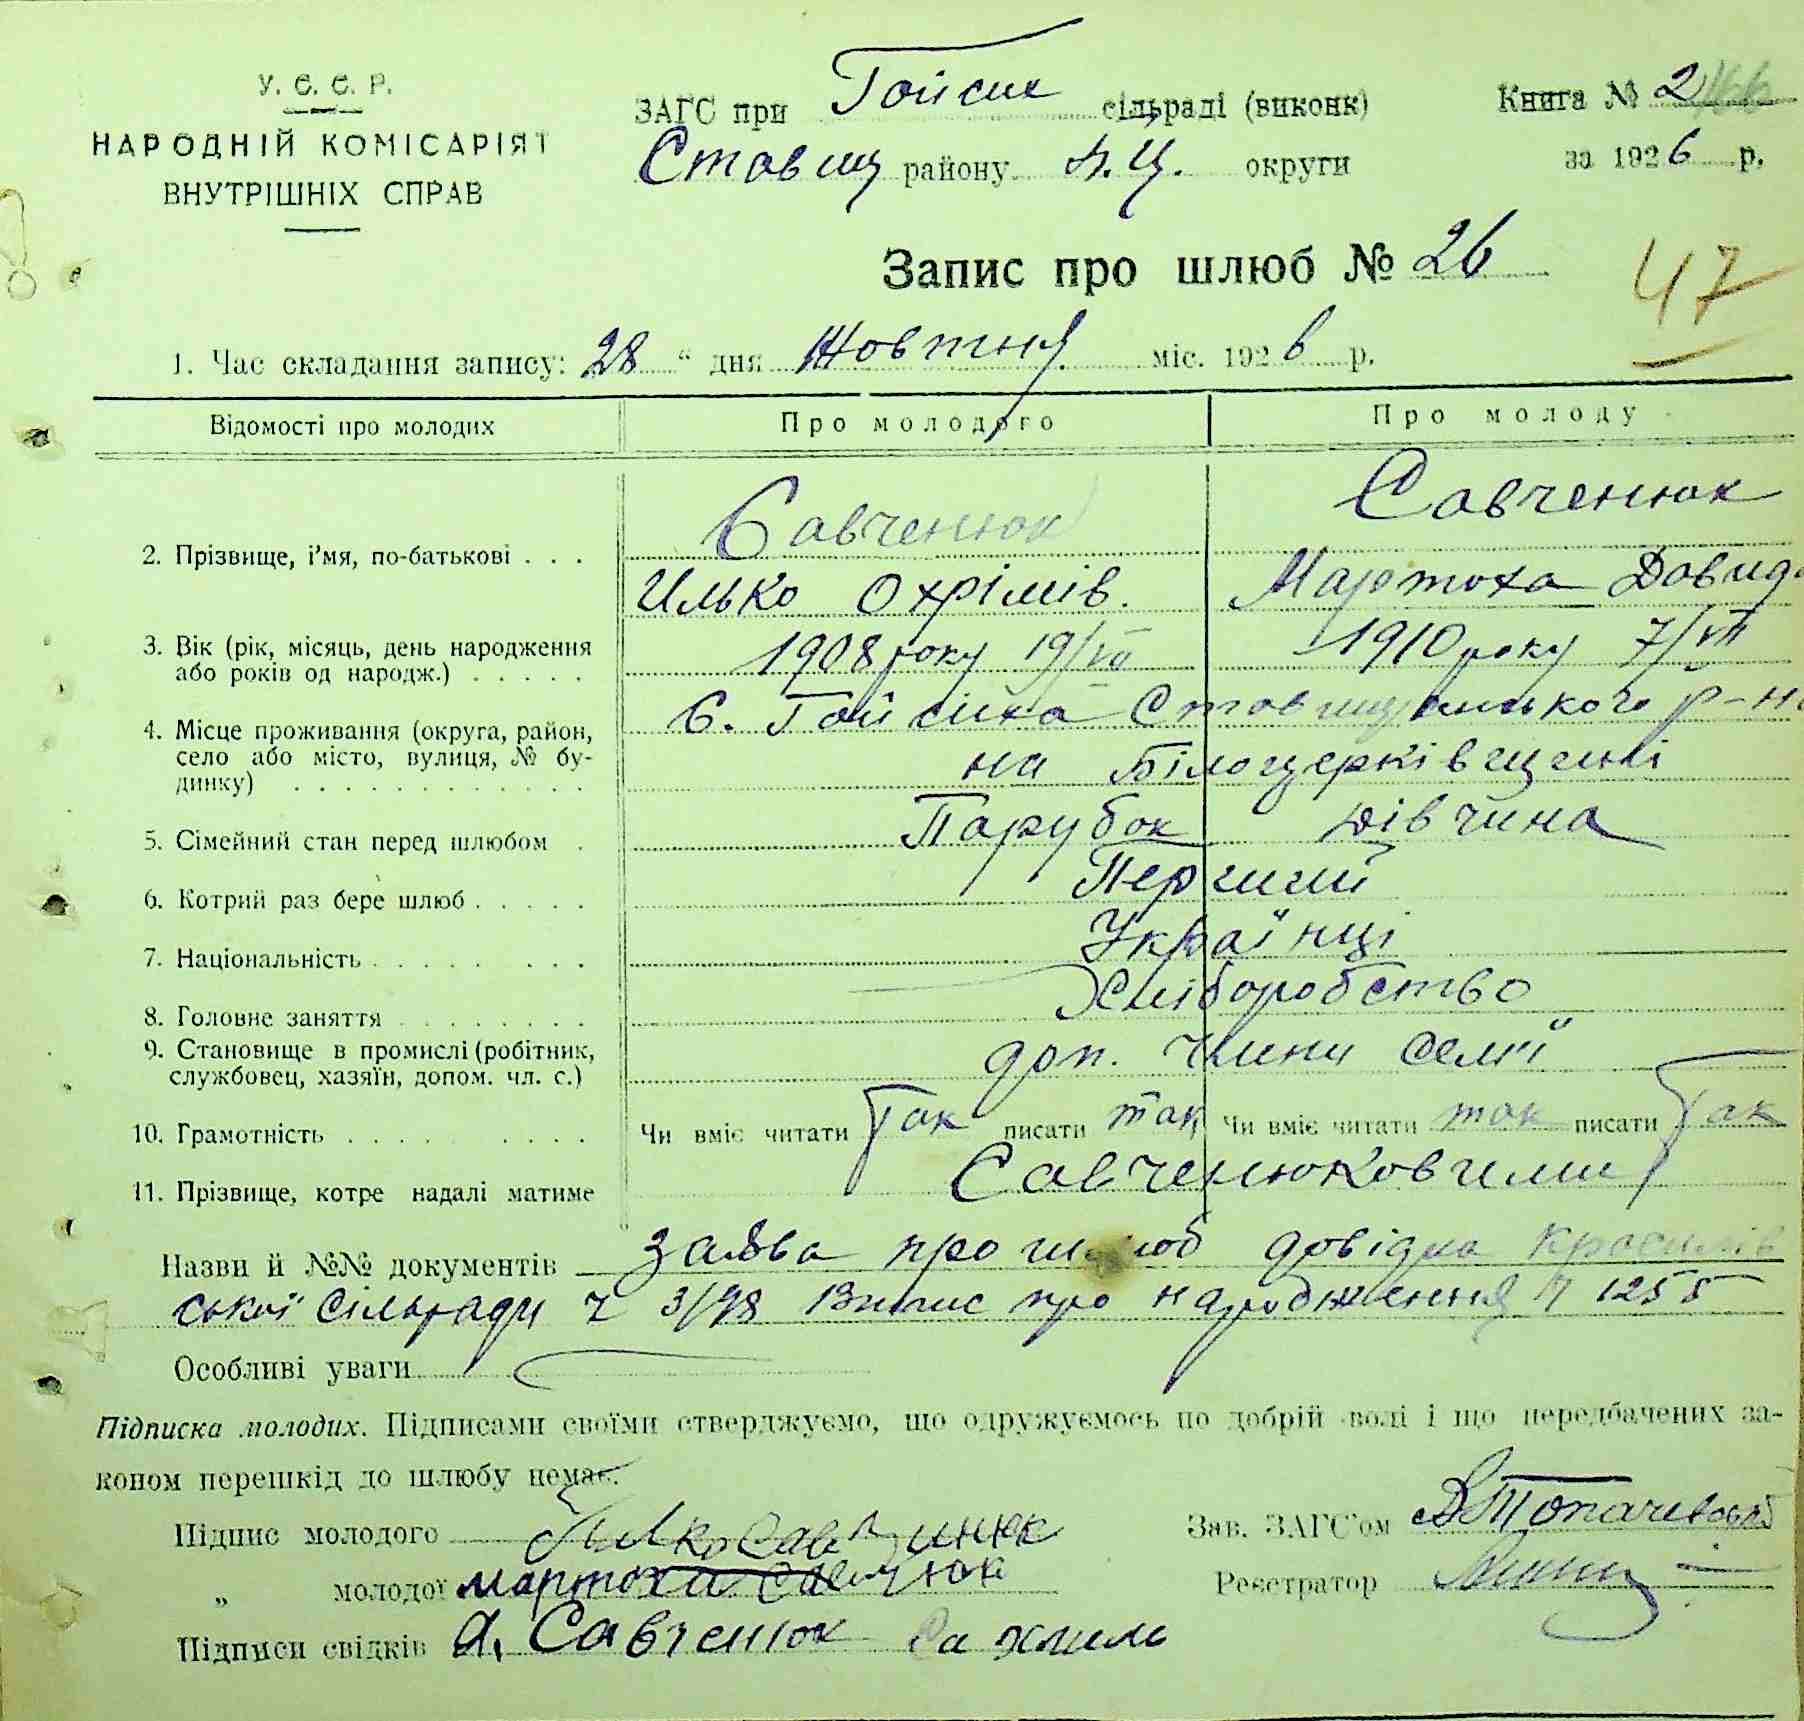 У. С. С. Р.
НАРОДНІЙ КОМІСАРІЯТ
ВНУТРІШНІХ СПРАВ
ЗАГС при Гойсик сільраді (виконк)
Ставищ району Б.Ц. округи
Книга № 2
за 1926 р.
Запис про шлюб № 26
47
1. Час складання запису: 28 " дня Жовтня міс. 1926 р.
Відомості про молодих Про молодого Про молоду
2. Прізвище, і'мя, по-батькові . . . Савченюк Савченюк
Илько Охрімів. Мартоха Давид
3. Вік (рік, місяць, день народження
або років од народж.) . . . . . 1908 року 19/VII 1910 року 7/VII
4. Місце проживання (округа, район,
село або місто, вулиця, № бу-
динку) . . . . . . . . . . . .
С. Гойсиха Ставищанського р-на
на Білоцерківщині
5. Сімейний стан перед шлюбом . Парубок дівчина
6. Котрий раз бере шлюб . . . . . Перший
7. Національність . . . . . . . . Українці
8. Головне заняття . . . . . . . . Хліборобство
9. Становище в промислі (робітник,
службовец, хазяїн, допом. чл. с.) доп. члени семї
10. Грамотність . . . . . . . . . Чи вміє читати Так писати так Чи вміє читати так писати Так
11. Прізвище, котре надалі матиме Савченюковими
Назви й №№ документів заява про шлюб довідка Красилів
ської Сільради ч 3/98 Випис про народження ч 1255
Особливі уваги
Підписка молодих. Підписами своїми стверджуємо, що одружуємось по добрій волі і що передбачених за-
коном перешкід до шлюбу немає.
Підпис молодого Илько Савчинюк
" молодої мартоха Савчюк
Підписи свідків А. Савченюк
Зав. ЗАГС'ом
Реєстратор